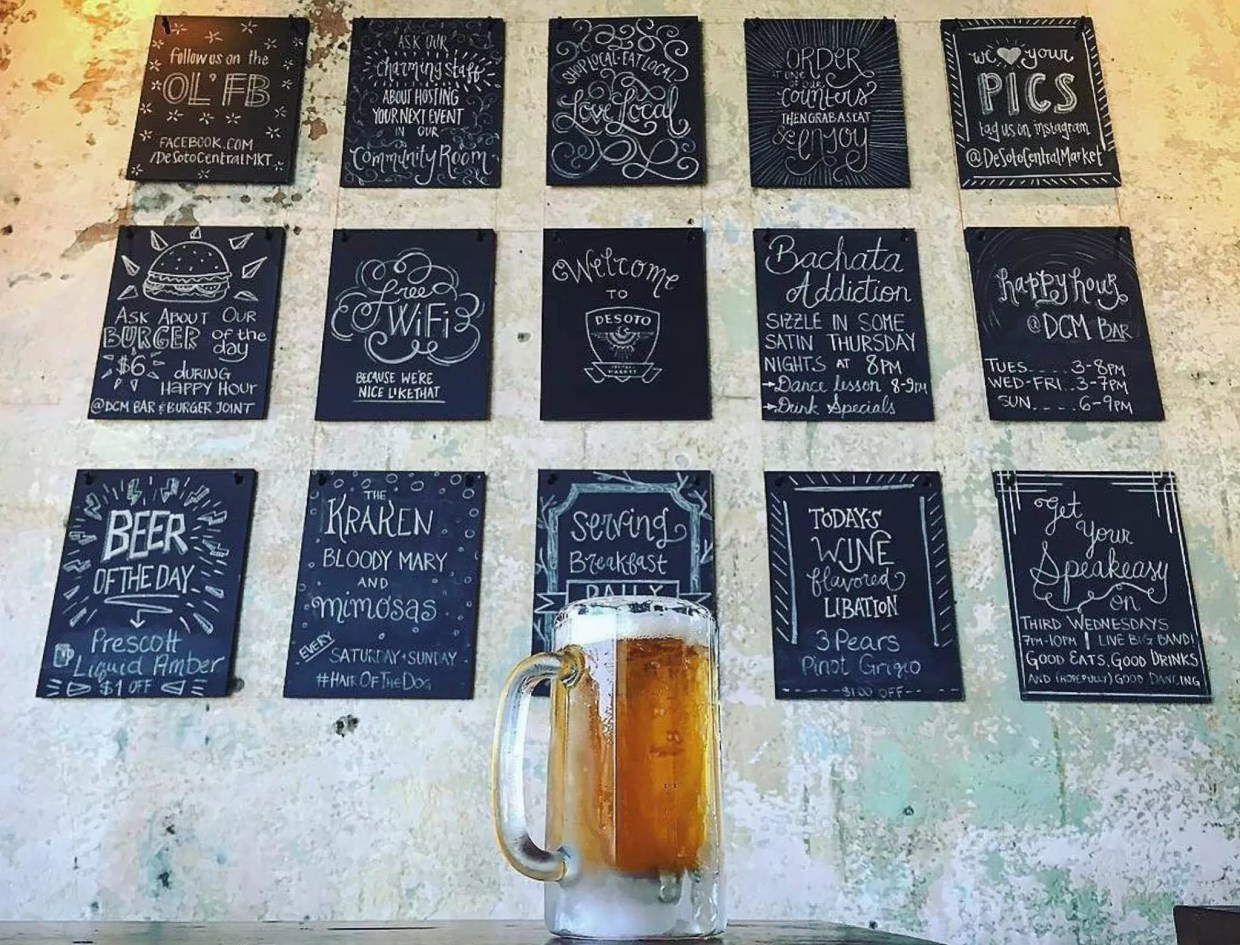 follow us on the
OL' FB
FACEBOOK.COM
/DeSotoCentralMKT
ASK OUR
charming staff
ABOUT HOSTING
YOUR NEXT EVENT
IN OUR
Community Room
SHOP LOCAL·EAT LOCAL
Love Local
ORDER
at one of our
counters
THEN GRAB A SEAT
& enjoy
we your
PICS
tag us on instagram
@DeSotoCentralMarket
ASK ABOUT OUR
BURGER of the
day
$6 during
HAPPY HOUR
@DCM BAR & BURGER JOINT
Free
WiFi
BECAUSE WERE
NICE LIKE THAT
Welcome
TO
DESOTO
CENTRAL
MARKET
Bachata
Addiction
SIZZLE IN SOME
SATIN THURSDAY
NIGHTS AT 8PM
→Dance lesson 8-9PM
→Drink Specials
happy hour
@DCM BAR
TUES.....3-8PM
WED-FRI..3-7PM
SUN.....6-9PM
BEER
OF THE DAY
Prescott
Liquid Amber
$1 OFF
THE
KRAKEN
BLOODY MARY
AND
mimosas
EVERY
SATURDAY+SUNDAY
#HAIR OF THE DOG
serving
Breakfast
DAILY
TODAY'S
WINE
flavored
LIBATION
3 Pears
Pinot Grigio
--$1.00 OFF--
Get
Your
Speakeasy
on
THIRD WEDNESDAYS
7PM-10PM | LIVE BIG BAND!
GOOD EATS, GOOD DRINKS
AND (HOPEFULLY) GOOD DANCING